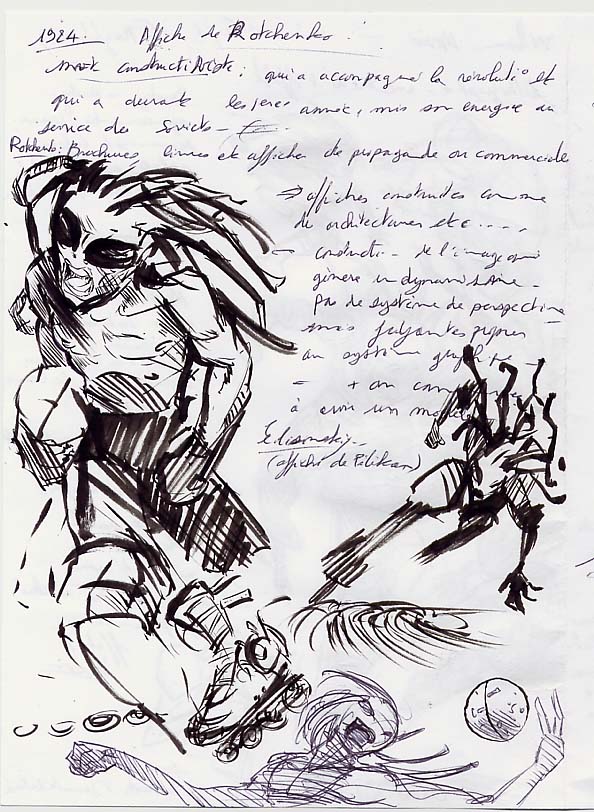 1924. Affiche de Rotchenko.
constructiviste; qui a accompagné la révolution et
qui a durant les 1ères années, mis son energie au
service des Soviets
Rotchenko: Brochures, livres et affiches de propagande ou commerciale
⇒ affiches construites comme
de architectures etc.....
construct de l'image qui
génère un dynamisme
pas de système de perspective
mais
au système graphique
= + on
à avoir un
(affiche de Pelikan)